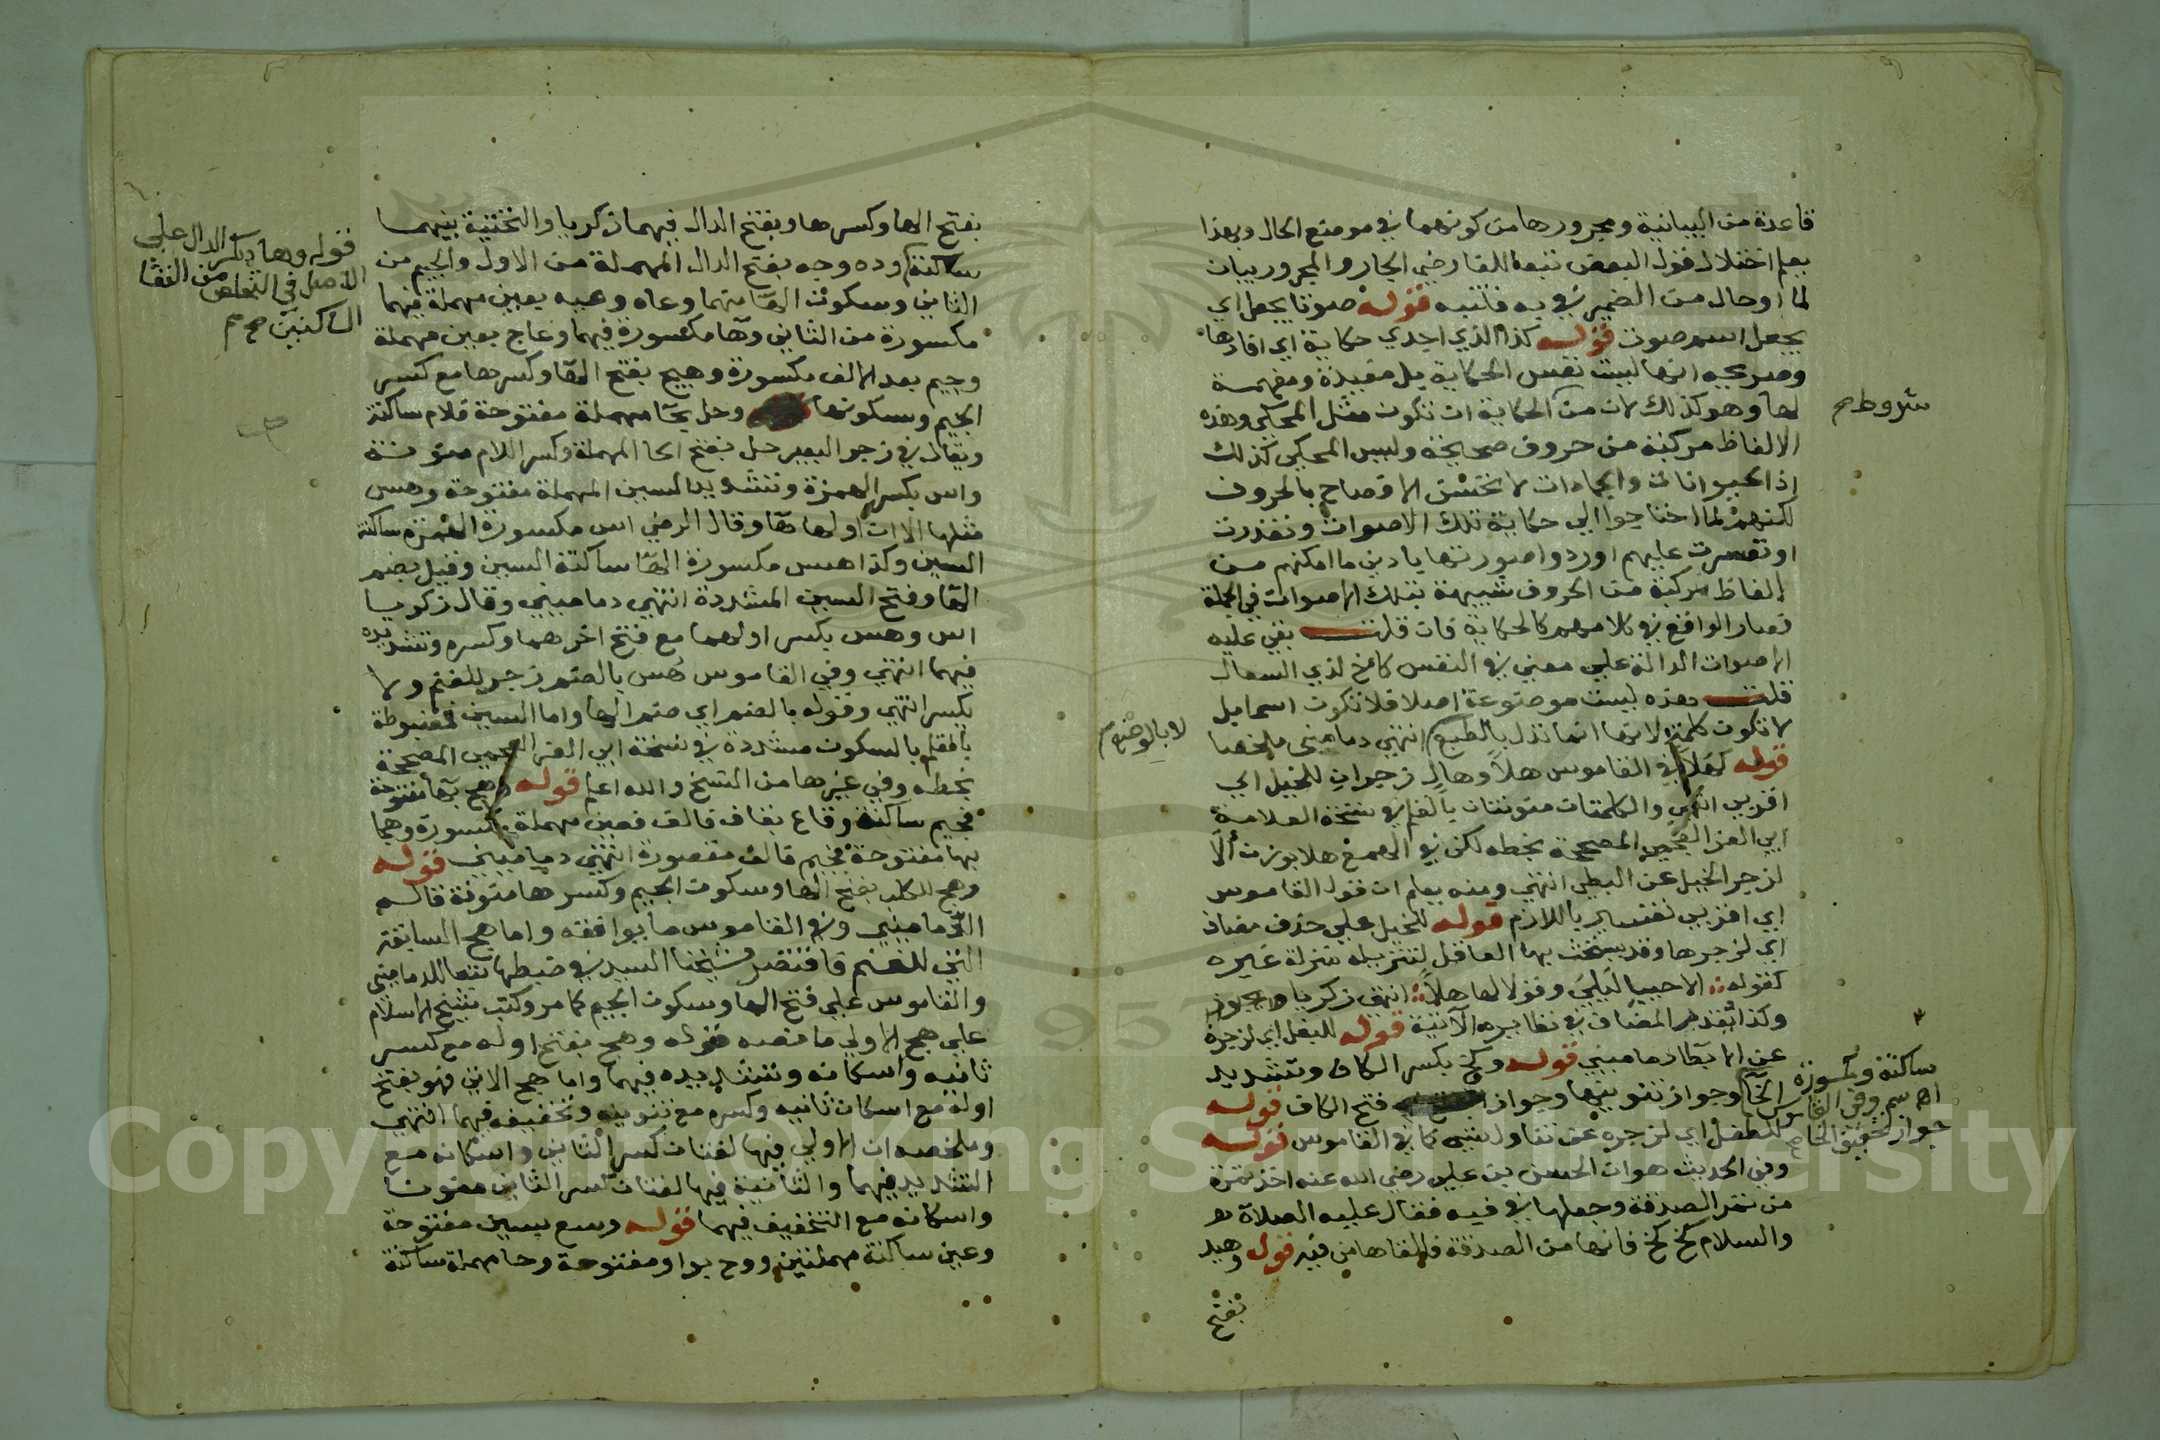 قاعدة من البيانية ومجرورها من كونهما في موضع الحال وبهذا
يعلم اختلال قول البعض تبعا للفارضي الجار والمجرور بيان
لما او حال من الضمير في به فانتبه قوله صوتا يجعل اي
يجعل اسم صوت قوله كذا الذي اجدي حكاية اي افادها
وصريحه انها ليست نفس الحكاية بل مفيدة ومفهمة
لها وهو كذلك لان من الحكاية ان تكون مثل المحكي وهذه
شروط صح
الالفاظ مركبة من حروف صحيحة وليس المحكي كذلك
اذ الحيوانات والجمادات لا تحسن الافصاح بالحروف
لكنهم لما احتاجوا الي حكاية تلك الاصوات وتعذرت
او تعسرت عليهم اوردوا صورتها بادني ما امكنهم من
الفاظ مركبة من الحروف شبيهة بتلك الاصوات في الجملة
فصار الواقع في كلامهم كالحكاية فان قلت بقي عليه
الاصوات الدالة علي معني في النفس كاح لذي السعال
قلت هذه ليست موضوعة اصلا فلا تكون اسما بل
لا تكون كلمة لانها انما تدل بالطبع انتهي دماميني ملخصا
لا بالوضع صح
قوله كهلا في القاموس هلا وهال زجران للخيل اي
اقربي انتهي والكلمتان منونتان بالقلم في نسخة العلامة
ابي العز العجمي المصححة بخطه لكن في الهمع هلا بوزن ألا
لزجر الخيل عن البطي انتهي ومنه يعلم ان قول القاموس
اي اقربي تفسير باللازم قوله للخيل علي حذف مضاف
اي لزجرها وقد يستحث بها العاقل لتنزيله منزلة غيره
كقوله الا حييا ليلي وقولا لها هلا انتهي زكريا ويجوز
وكذا تقدير المضاف في نظايره الآتية قوله للبغل اي لزجره
عن الابطا دماميني قوله وكخ بكسر الكاف وتشديد
الخا وجواز تنوينها وجواز فتح الكاف قوله
ساكنة ومكسورة
اه سم وفي القاموس
جواز تخفيف الخا صح
للطفل اي لزجره عن تناول شي كما في القاموس قوله
وفي الحديث هو ان الحسن بن علي رضي الله عنه اخذ تمرة
من تمر الصدقة وجعلها في فيه فقال عليه الصلاة
والسلام كخ كخ فانها من الصدقة فالقاها من فيه قوله وهيد
بفتح
بفتح الها وكسرها وبفتح الدال فيهما زكريا والتحتية بينهما
ساكنة وده وجه بفتح الدال المهملة من الاول والجيم من
الثاني وسكون الها منهما وعاه وعيه بعين مهملة فيهما
قوله وها بكسر الدال علي
الاصل في التخلص من التقا
الساكنين صح
مكسورة من الثاني وها مكسورة فيهما وعاج بعين مهملة
وجيم بعد الالف مكسورة وهيج بفتح الها وكسرها مع كسر
الجيم وسكونها وحل بحا مهملة مفتوحة فلام ساكنة
ويقال في زجر البعير حل بفتح الحا المهملة وكسر اللام منونة
واس بكسر الهمزة وتشديد السين المهملة مفتوحة وهس
مثلها الا ان اولها ها وقال الرضي اس مكسورة الهمزة ساكنة
السين وكذا هس مكسورة الها ساكنة السين وقيل بضم
الها وفتح السين المشددة انتهي دماميني وقال زكريا
اس وهس بكسر اولهما مع فتح اخرهما وكسره وتشديده
فيهما انتهي وفي القاموس هس بالضم زجر للغنم ولا
يكسر انتهي وقوله بالضم اي ضم الها واما السين فمضبوطة
بالقلم بالسكون مشددة في نسخة ابي العز العجمي المصححة
بخطه وفي غيرها من النسخ والله اعلم قوله وهج بها مفتوحة
فجيم ساكنة وقاع بقاف فالف فعين مهملة مكسورة وهجا
بها مفتوحة فجيم فالف مقصورة انتهي دماميني قوله
وهج للكلب بفتح الها وسكون الجيم وكسرها منونة قاله
الدماميني وفي القاموس ما يوافقه واما هج السابقة
التي للغنم فاقتصر شيخنا السيد في ضبطها تبعا للدماميني
والقاموس علي فتح الها وسكون الجيم كما مر وكتب شيخ الاسلام
علي هج الاولي ما نصه قوله وهج بفتح اوله مع كسر
ثانيه واسكانه وتشديده فيهما واما هج الاتي فهو بفتح
اوله مع اسكان ثانيه وكسره مع تنوينه وتخفيفه فيهما انتهي
وملخصه ان الاولي فيها لغتان كسر الثاني واسكانه مع
التشديد فيهما والثانية فيها لغتان كسر الثاني منونا
واسكانه مع التخفيف فيهما قوله وسع بسين مفتوحة
وعين ساكنة مهملتين ووح بواو مفتوحة وحا مهملة ساكنة
Copyright © King Saud University
1957